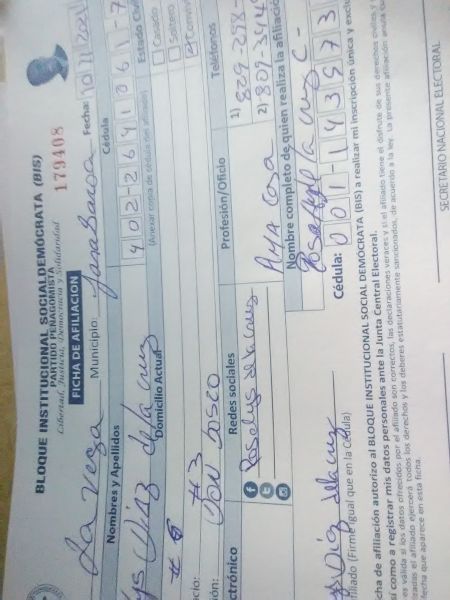 BLOQUE INSTITUCIONAL SOCIALDEMÓCRATA (BIS)
PARTIDO PEÑAGOMISTA
Libertad, Justicia, Democracia y Solidaridad
179408
FICHA DE AFILIACION
La Vega Municipio: Jarabacoa Fecha:
Nombres y Apellidos Cédula
de la Cruz 402-2641361-7
(Anexar copia de cédula del afiliado)
Estado Civil
Casado
Soltero
Domicilio Actual
#3
Don Bosco
Profesión/Oficio
Teléfonos
ctrónico Redes sociales
Roselys de la cruz
Ama Casa
1) 829-298-
2) 809-
Nombre completo de quien realiza la afiliación
Cédula: 001-143973
filiado (Firme igual que en la Cédula)
cha de afiliación autorizo al BLOQUE INSTITUCIONAL SOCIAL DEMOCRATA (BIS) a realizar mi inscripción única y exclu
sí como a registrar mis datos personales ante la Junta Central Electoral.
es válida si los datos ofrecidos por el afiliado son correctos, las declaraciones veraces y si el afiliado tiene el disfrute de sus derechos civiles y
zadas el afiliado ejercerá todos los derechos y los deberes estatutariamente sancionados, de acuerdo a la ley. La presente afiliación anula
fecha que aparece en esta ficha.
SECRETARIO NACIONAL ELECTORAL